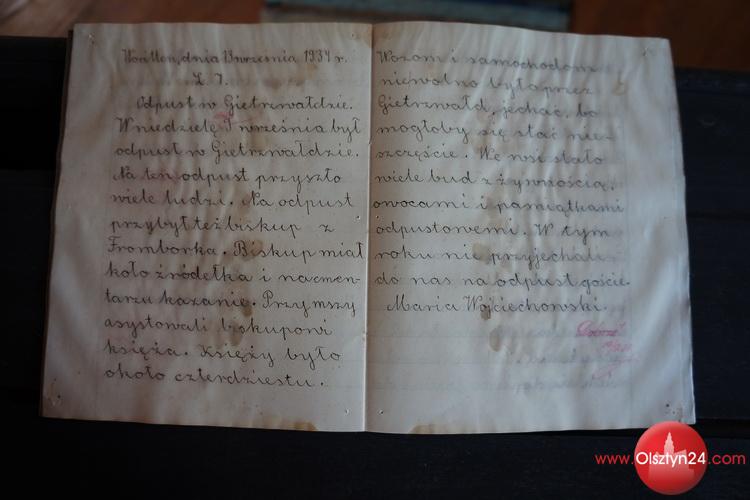 Woritten, dnia 13 września 1934 r.
L. 7.
Odpust w Gietrzwałdzie.
W niedzielę 9 września był
odpust w Gietrzwałdzie.
Na ten odpust przyszło
wiele ludzi. Na odpust
przybył też biskup z
Fromborka. Biskup miał
koło źródełka i na cmen-
tarzu kazanie. Przy mszy
asystowali biskupowi
księża. Księży było
około czterdziestu.
Wozom i samochodom
niewolno było przez
Gietrzwałd, jechać, bo
mogłoby się stać nie-
szczęście. We wsi stało
wiele bud z żywnością,
owocami i pamiątkami
odpustowemi. W tym
roku nie przyjechali
do nas na odpust goście.
Maria Wojciechowski.
www.Olsztyn24.com